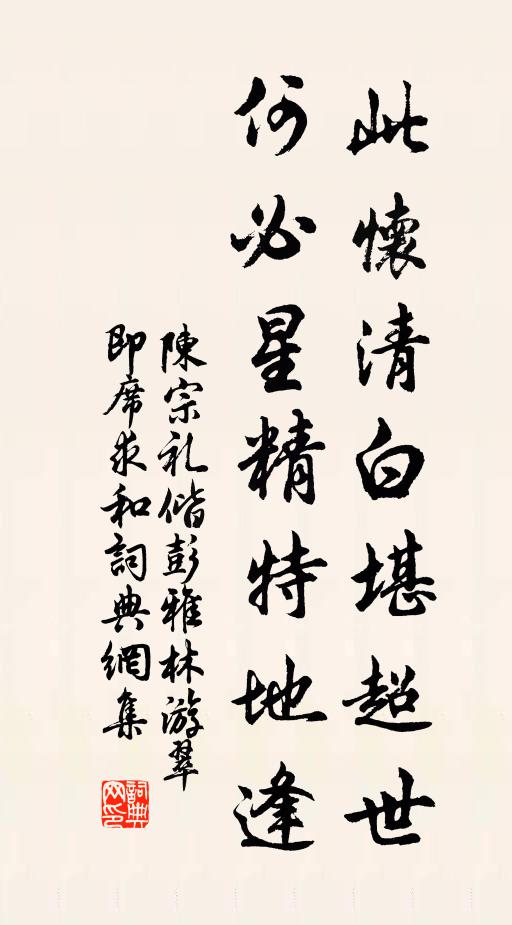 此懷清白堪超世
何必星精特地逢
陳宗礼偕彭雅林游翠
即席求和詞典網集
詞典网印